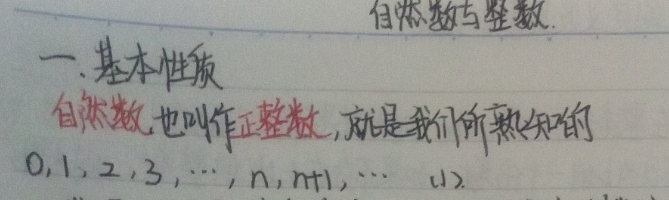 自然数与整数.
一.基本性质
自然数,也叫作正整数,就是我们所熟知的
0,1,2,3,…,n,n+1,… (1).